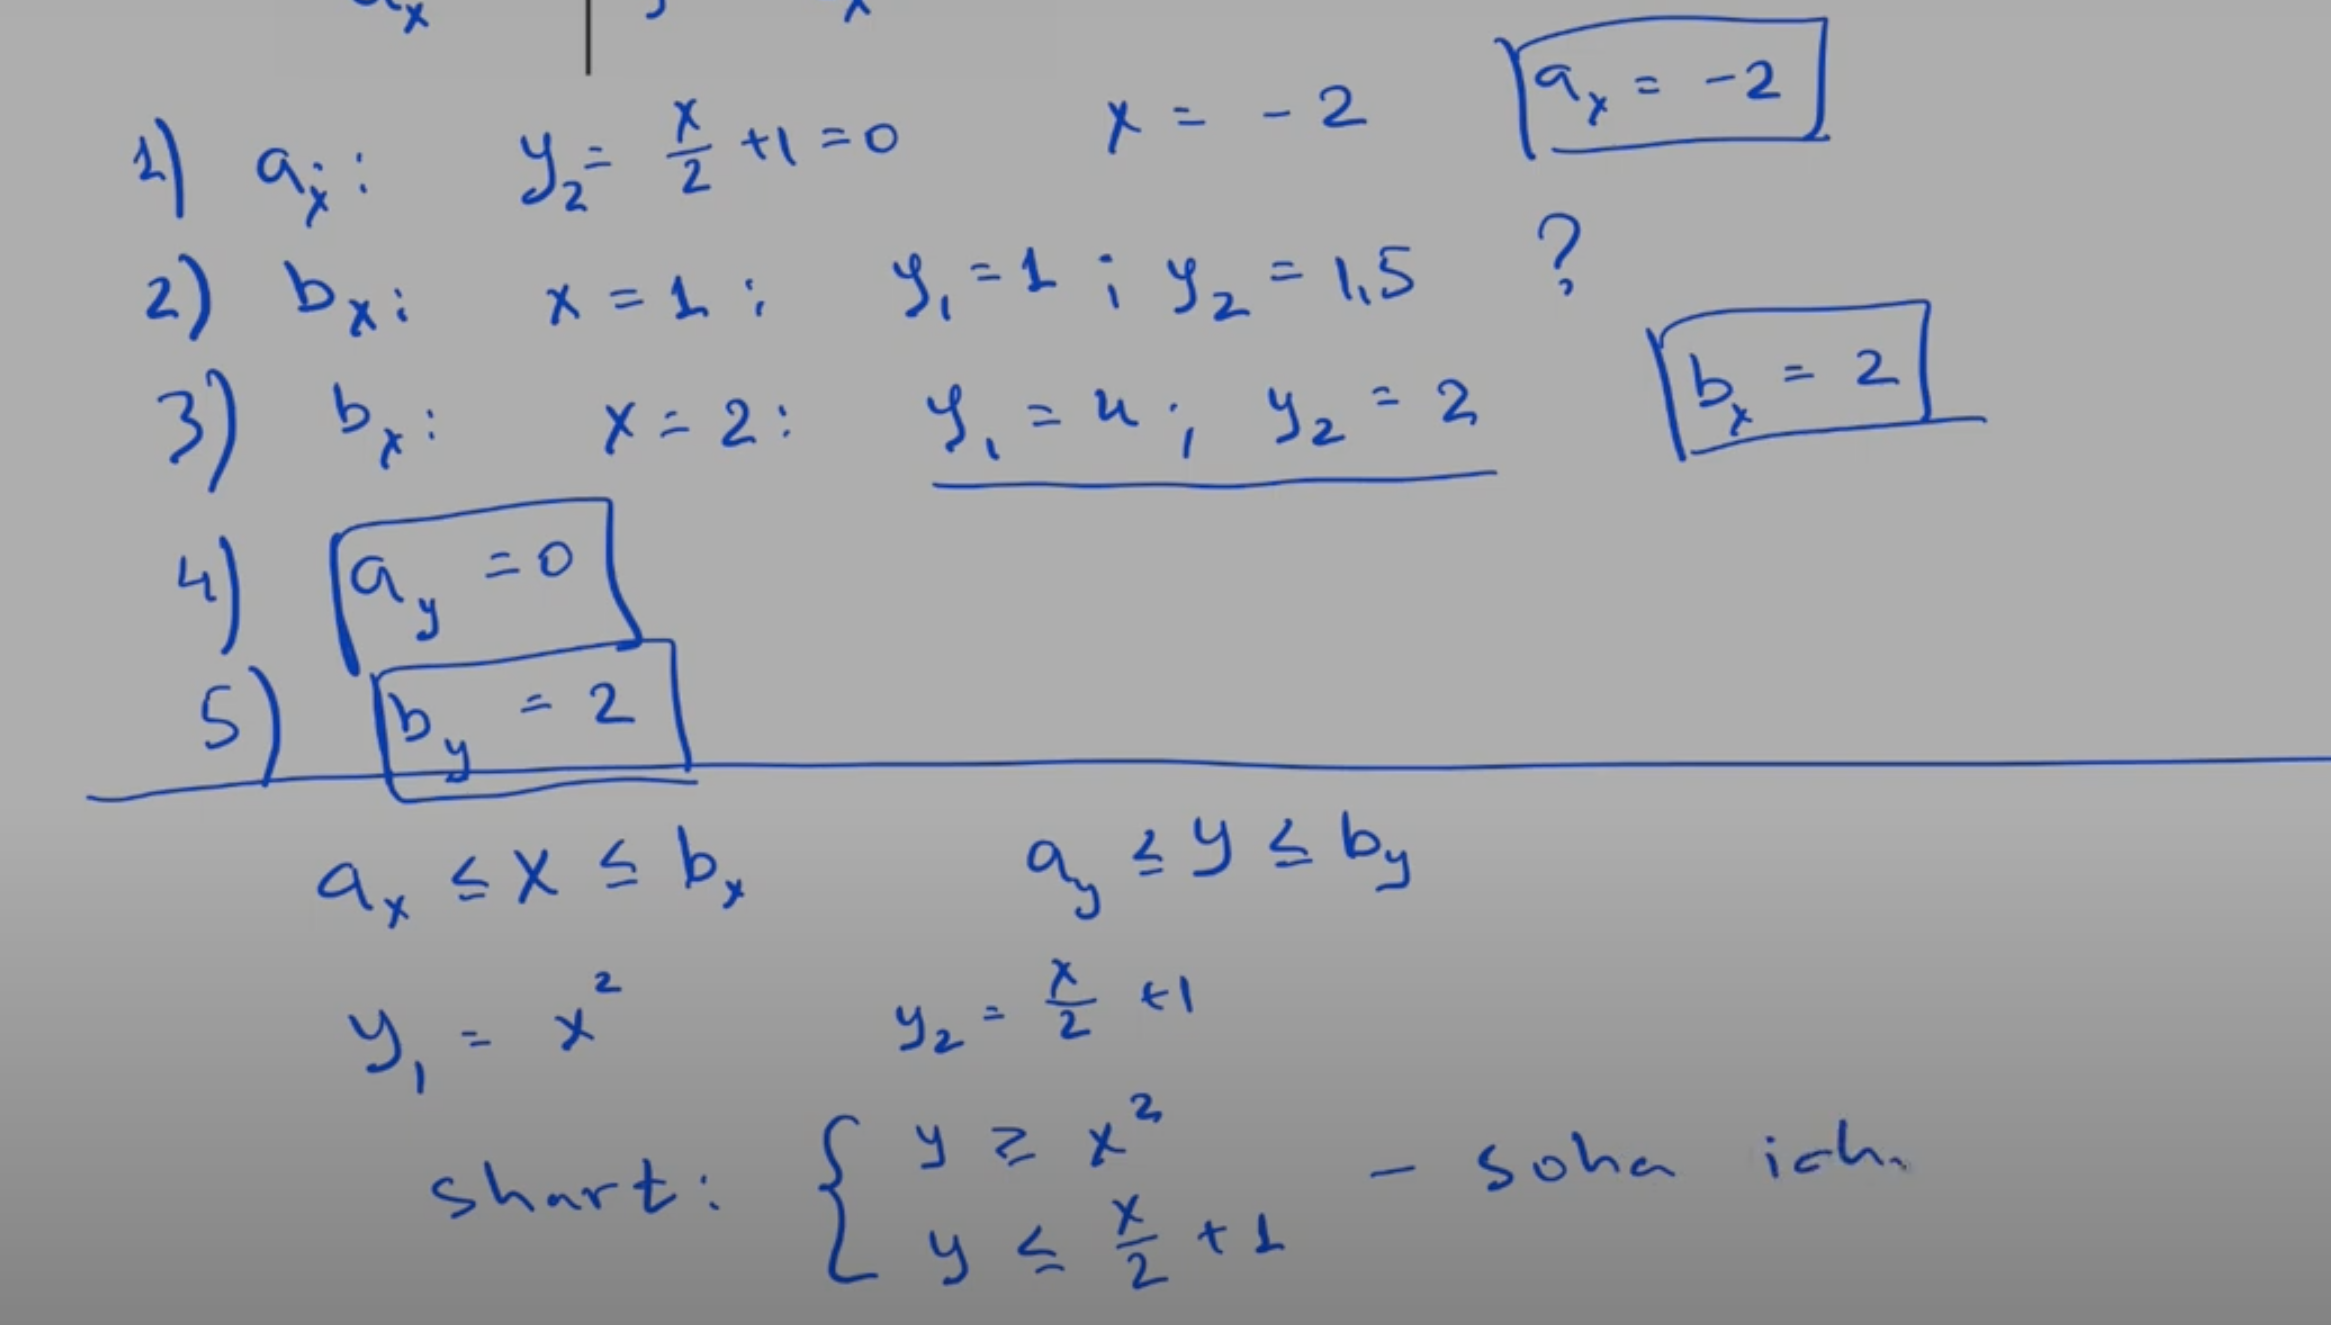 1) aₓ: y₂ = x/2 + 1 = 0 x = -2 aₓ = -2
2) bₓ: x = 1: y₁ = 1; y₂ = 1,5 ?
3) bₓ: x = 2: y₁ = 4; y₂ = 2 bₓ = 2
4) a_y = 0
5) b_y = 2
aₓ ≤ x ≤ bₓ a_y ≤ y ≤ b_y
y₁ = x² y₂ = x/2 + 1
shart: { y ≥ x² - soha ich
y ≤ x/2 + 1